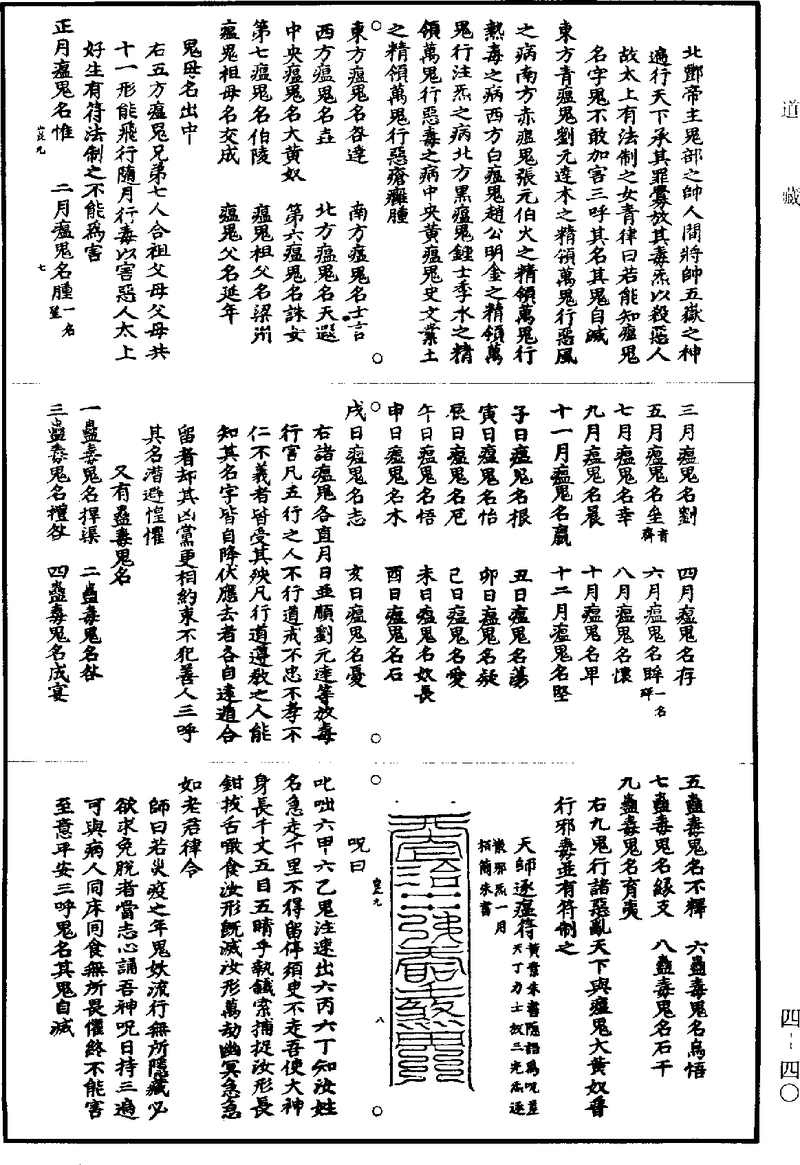 道藏
四-四〇
北酆帝主鬼部之帥人間將帥五嶽之神
遍行天下承其罪舋放其毒炁以殺惡人
故太上有法制之女青律曰若能知瘟鬼
名字鬼不敢加害三呼其名其鬼自滅
東方青瘟鬼劉元達木之精領萬鬼行惡風
之病南方赤瘟鬼張元伯火之精領萬鬼行
熱毒之病西方白瘟鬼趙公明金之精領萬
鬼行注炁之病北方黑瘟鬼鍾士季水之精
領萬鬼行惡毒之病中央黃瘟鬼史文業土
之精領萬鬼行惡瘡癰腫
東方瘟鬼名咎達 南方瘟鬼名士言
西方瘟鬼名垚 北方瘟鬼名天遐
中央瘟鬼名大黃奴 第六瘟鬼名誅女
第七瘟鬼名伯陵 瘟鬼祖父名梁州
瘟鬼祖母名交成 瘟鬼父名延年
鬼母名出中
右五方瘟鬼兄弟七人合祖父母父母共
十一形能飛行隨月行毒以害惡人太上
好生有符法制之不能爲害
正月瘟鬼名惟 二月瘟鬼名腫一名
七
三月瘟鬼名劉 四月瘟鬼名存
五月瘟鬼名坐 六月瘟鬼名眸一名
七月瘟鬼名幸 八月瘟鬼名懷
九月瘟鬼名晨 十月瘟鬼名卑
十一月瘟鬼名羸 十二月瘟鬼名堅
子日瘟鬼名根 丑日瘟鬼名蕩
寅日瘟鬼名怡 卯日瘟鬼名疑
辰日瘟鬼名卮 巳日瘟鬼名愛
午日瘟鬼名悟 未日瘟鬼名奴長
申日瘟鬼名木 酉日瘟鬼名石
戌日瘟鬼名志 亥日瘟鬼名憂
右諸瘟鬼各直月日並順劉元達等放毒
行害凡五行之人不行道戒不忠不孝不
仁不義者皆受其殃凡行道遵教之人能
知其名字皆自降伏應去者各自達遁合
留者却其凶黨更相約束不犯善人三呼
其名潛避惶懼
又有蠱毒鬼名
一蠱毒鬼名捍渠 二蠱毒鬼名咎
三蠱毒鬼名禮咎 四蠱毒鬼名成宴
五蠱毒鬼名不釋 六蠱毒鬼名烏悟
七蠱毒鬼名緣支 八蠱毒鬼名石千
九蠱毒鬼名育夷
右九鬼行諸惡亂天下與瘟鬼大黃奴晉
行邪毒並有符制之
天師逐瘟符黃素朱書隱語爲呪并
天丁力士收三光炁逐
滅邪炁一月
栢簡朱書
八
呪曰
叱咄六甲六乙鬼注速出六丙六丁知汝姓
名急走千里不得留停須史不走吾使大神
身長千丈五目五睛手執鐵索捕捉汝形長
鉗拔舌噉食汝形旣滅汝形萬劫幽冥急急
如老君律令
師曰若炎疫之年鬼妖流行無所隱藏必
欲求免脫者當志心誦吾神呪日持三遍
可與病人同床同食無所畏懼終不能害
至意平安三呼鬼名其鬼自滅